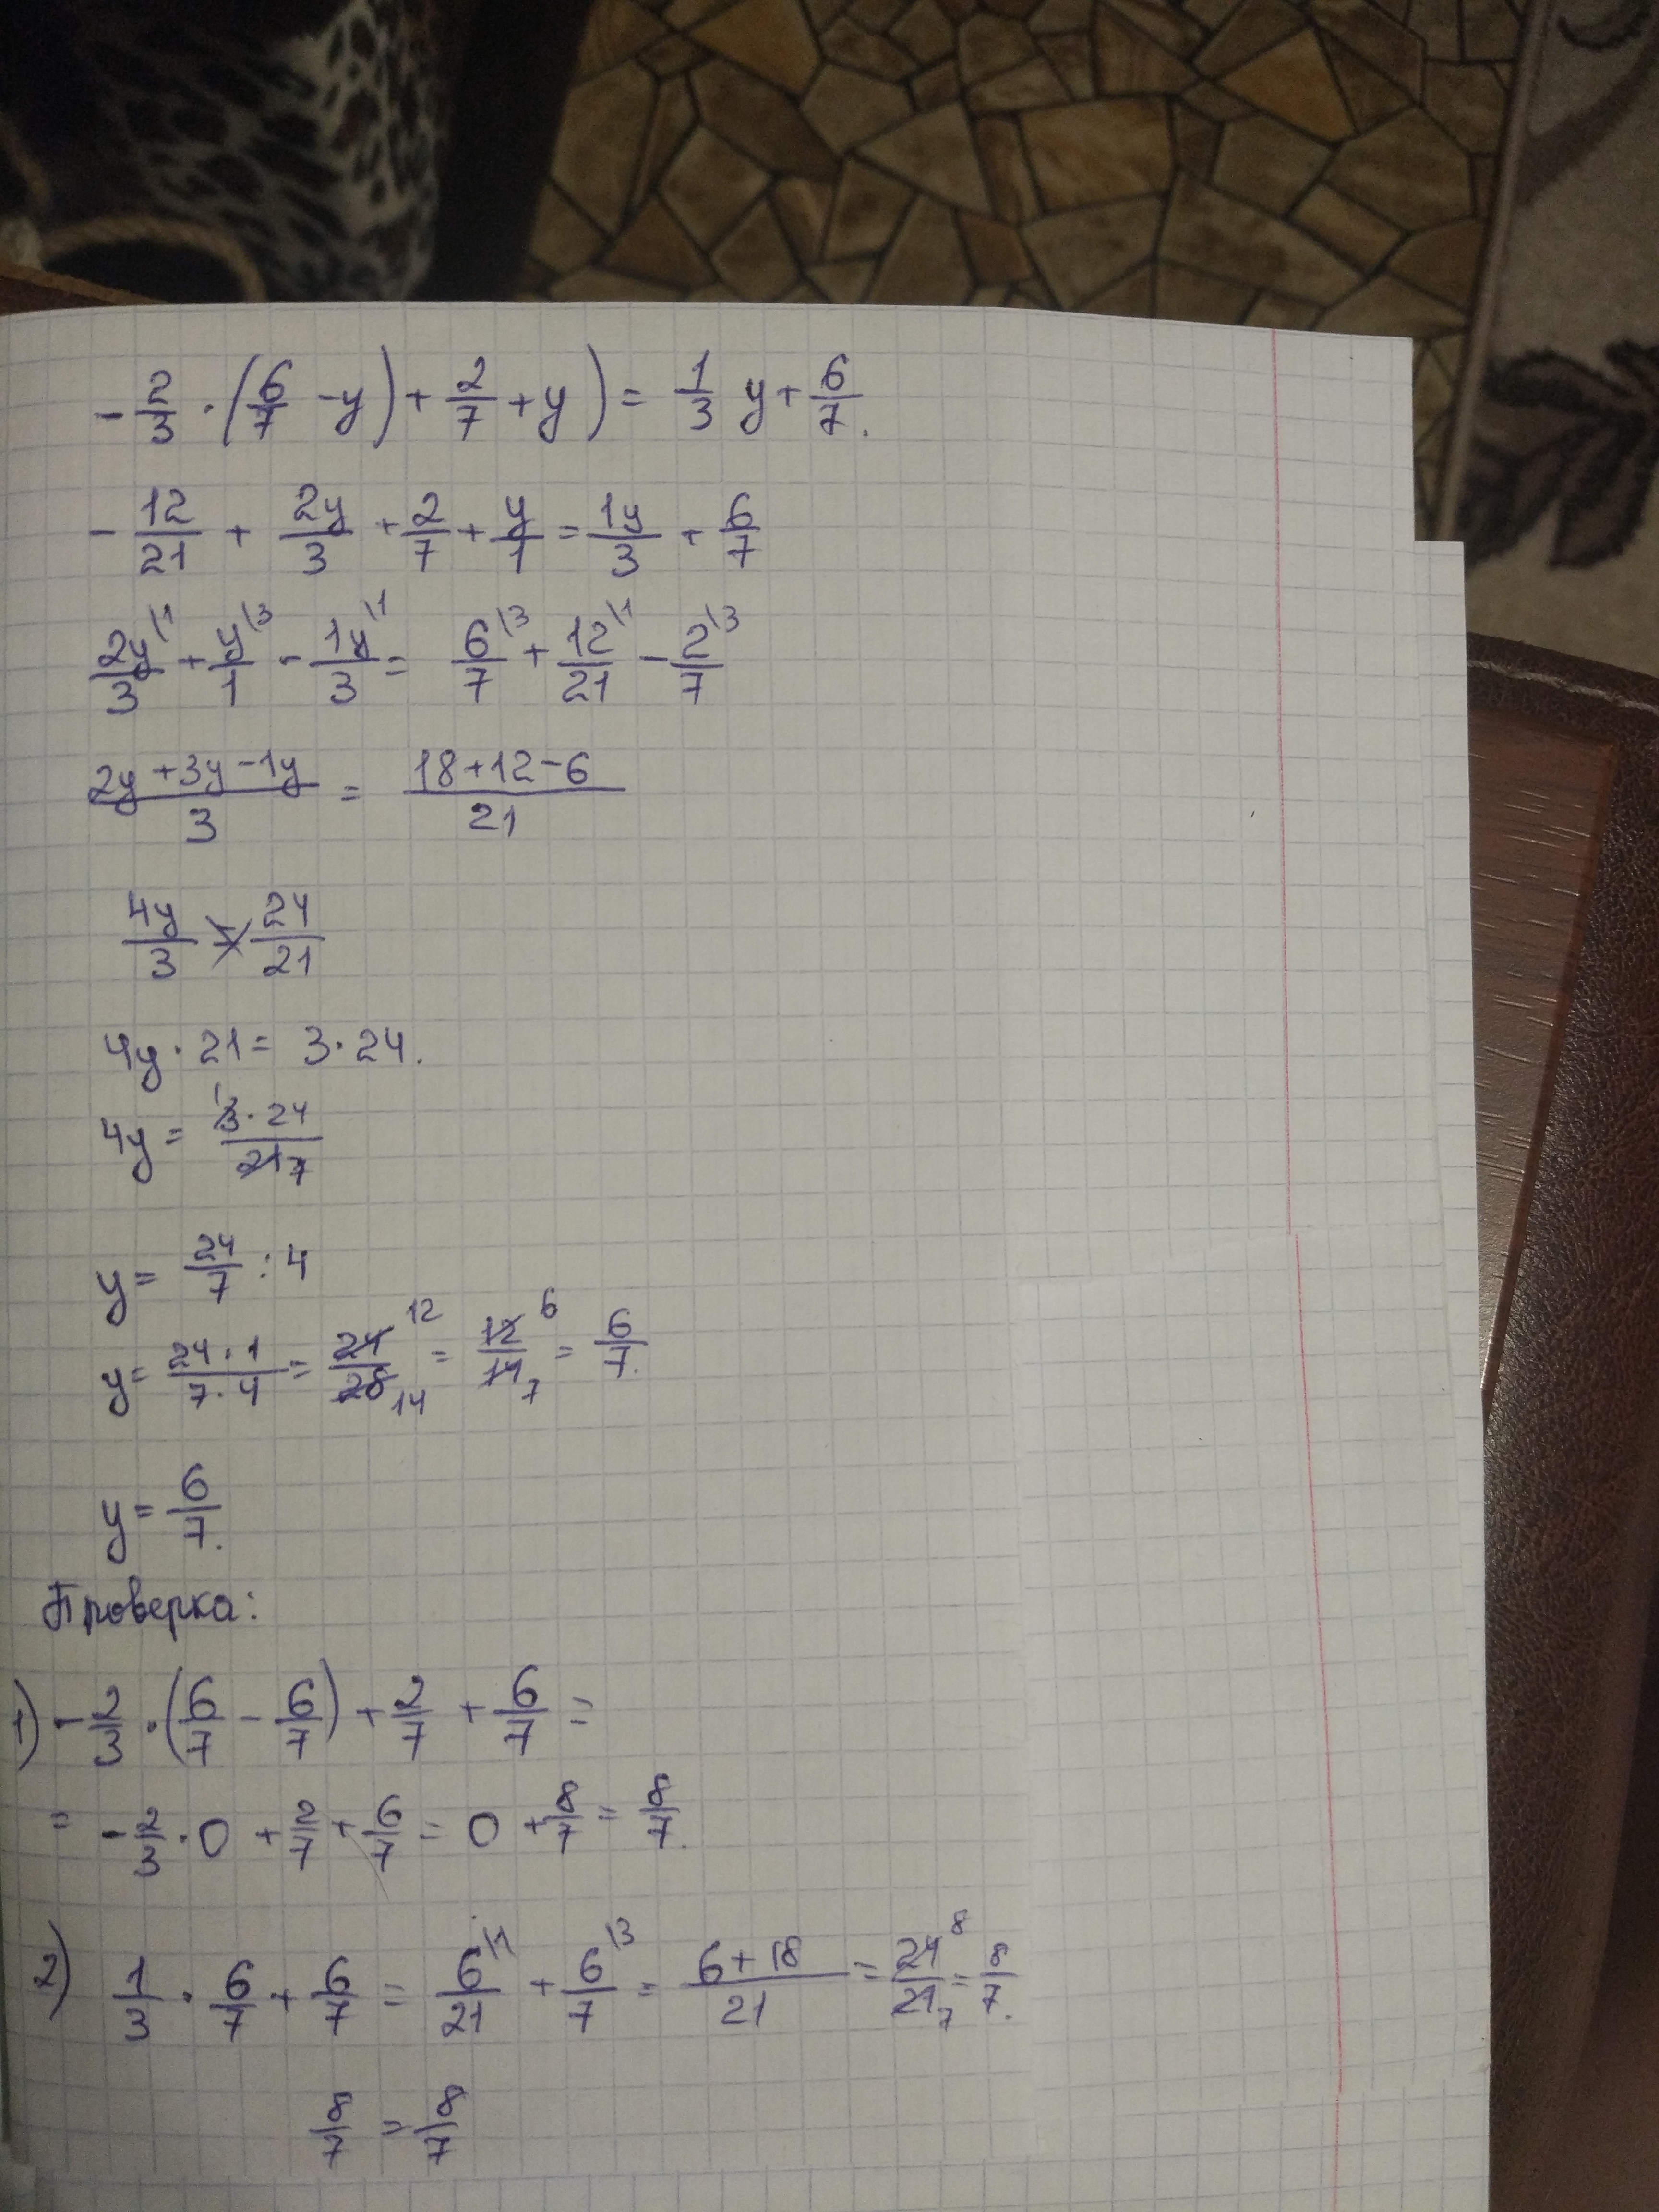 - 2/3 · (6/7 - y) + 2/7 + y) = 1/3 y + 6/7.
- 12/21 + 2y/3 + 2/7 + y/1 = 1y/3 + 6/7
2y/3 \1 + y/1 \3 - 1y/3 \1 = 6/7 \3 + 12/21 \1 - 2/7 \3
2y + 3y - 1y / 3 = 18 + 12 - 6 / 21
4y/3 = 24/21
4y · 21 = 3 · 24.
4y = 3 1 · 24 / 21 7
y = 24/7 : 4
y = 24 · 1 / 7 · 4 = 24 12 / 28 14 = 12 6 / 14 7 = 6/7.
y = 6/7.
Проверка:
1) - 2/3 · (6/7 - 6/7) + 2/7 + 6/7 =
= - 2/3 · 0 + 2/7 + 6/7 = 0 + 8/7 = 8/7.
2) 1/3 · 6/7 + 6/7 = 6/21 \1 + 6/7 \3 = 6 + 18 / 21 = 24 8 / 21 7 = 8/7.
8/7 = 8/7